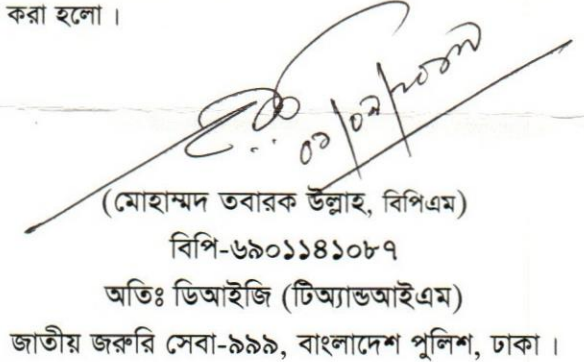 করা হলো ।
(মোহাম্মদ তবারক উল্লাহ, বিপিএম)
বিপি-৬৯০১১৪১০৮৭
অতিঃ ডিআইজি (টিঅ্যান্ডআইএম)
জাতীয় জরুরি সেবা-৯৯৯, বাংলাদেশ পুলিশ, ঢাকা ।